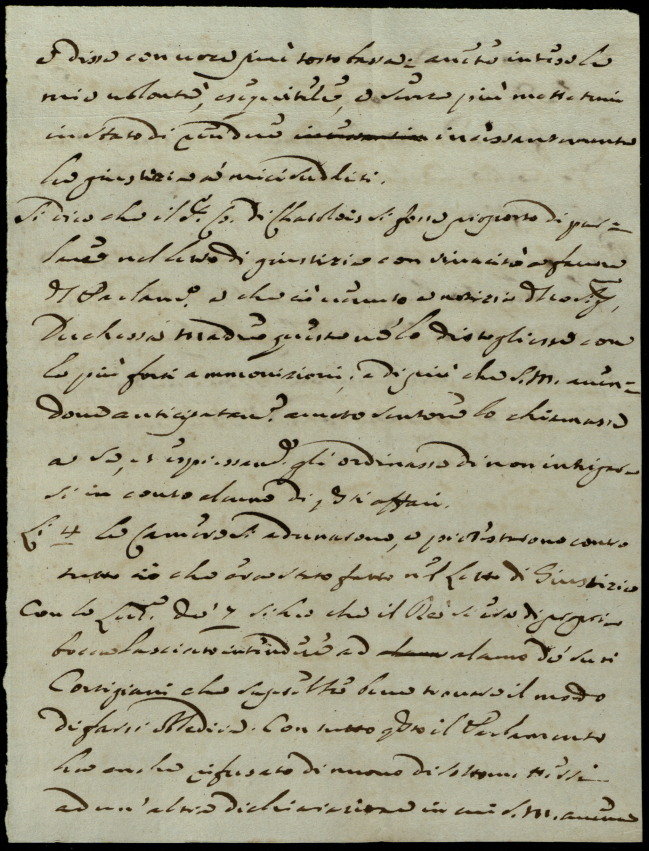 e disse con voce più tosto bassa: avete intese le
mie volontà, eseguitele, e senza più mettetemi
in stato di rendere incessantemente
la giustizia a' miei sudditi.
Si dice che il Sr. Co. di Charolois si fosse proposto di par=
lare nel letto di giustizia con vivacità a favore
del Parlamto. e che ciò venuto a notizia
Duchessa Madre questa ne lo distogliesse con
le più forti ammonizioni; e di più che S. M. aven=
done anticipatamte. avuto sentore lo chiamasse
a se, et espressamte. gli ordinasse di non intrigar=
si in conto alcuno di qsti affari.
Li 4 le Camere si adunarono, e protestarono contro
tutto ciò che era stato fatto nel Letto di Giustizia
Con le Lettre. de' 7 si ha che il Rè si era di propria
bocca lasciato intendere ad alcuno de' suoi
Cortigiani che saprebbe bene trovare il modo
di farsi obbedire. Con tutto qsto il Parlamento
ha anche rifusato di nuovo di sottomettersi
ad un' altra dichiarazione in cui S. M. aveva